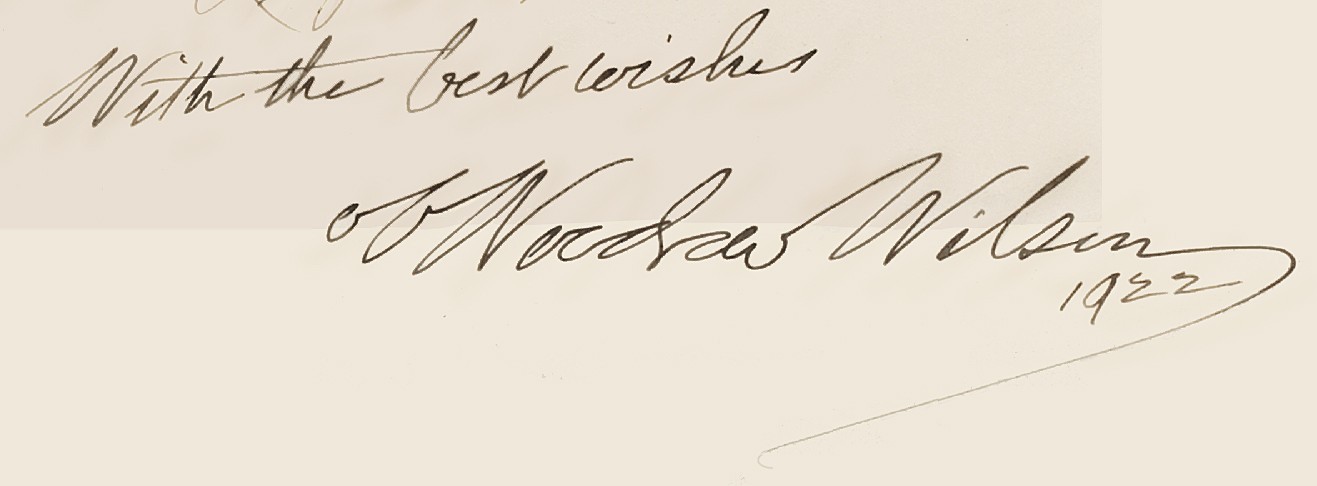 With the best wishes
of Woodrow Wilson
1922